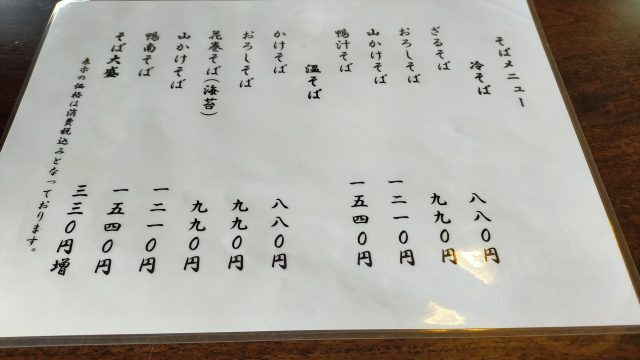 そばメニュー
冷そば
ざるそば 八八〇円
おろしそば 九九〇円
山かけそば 一二一〇円
鴨汁そば 一五四〇円
温そば
かけそば 八八〇円
おろしそば 九九〇円
花巻そば(海苔) 九九〇円
山かけそば 一二一〇円
鴨南そば 一五四〇円
そば大盛 三三〇円増
表示の価格は消費税込みとなっております。